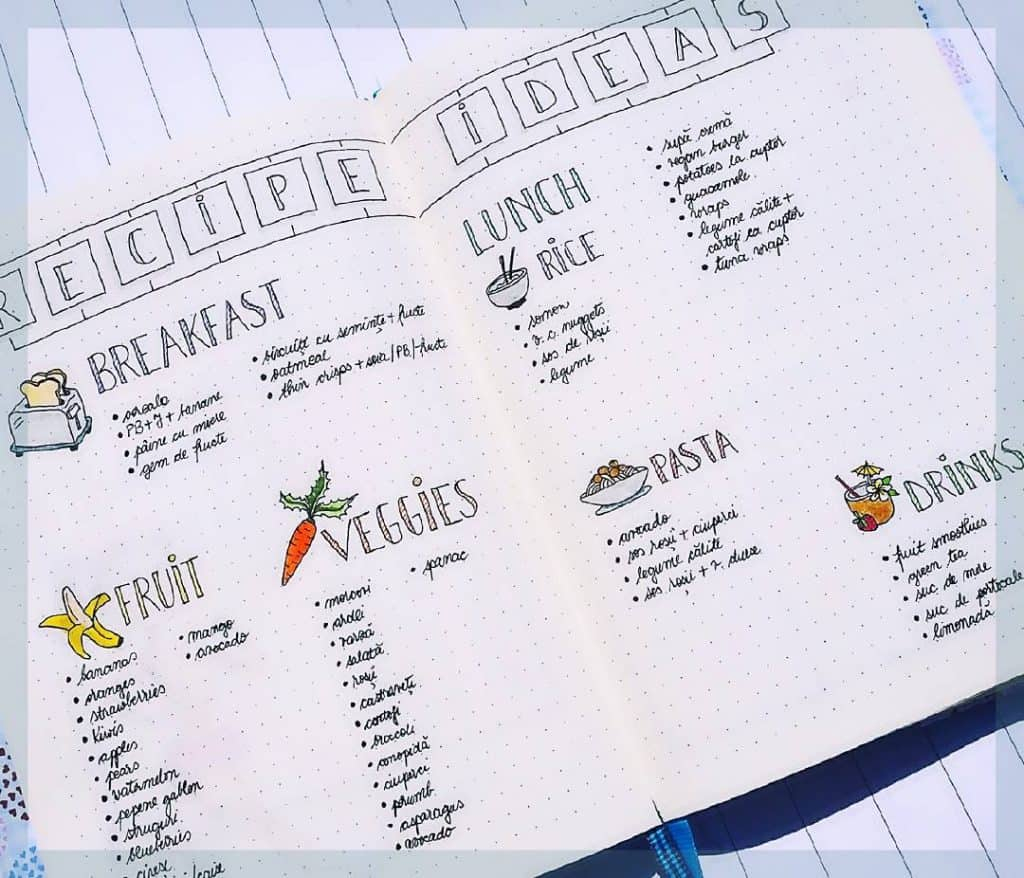 RECIPE IDEAS
BREAKFAST
• cereale
• PB+J + banane
• pâine cu miere
• gem de fructe
• biscuiți cu semințe + fructe
• oatmeal
• thin crisps + soia/PB/fructe
FRUIT
• bananas
• oranges
• strawberries
• kiwis
• apples
• pears
• watermelon
• pepene galben
• struguri
• blueberries
• cirese
• mango
• avocado
VEGGIES
• morcovi
• ardei
• varză
• salată
• roșii
• castraveți
• cartofi
• brocoli
• conopidă
• ciuperci
• porumb
• asparagus
• avocado
• spanac
LUNCH
RICE
• somon
• v. c. nuggets
• sos de roșii
• legume
• supă cremă
• vegan burger
• potatoes la cuptor
• guacamole
• wraps
• legume călite +
cartofi la cuptor
• tuna wraps
PASTA
• avocado
• sos roșii + ciuperci
• legume călite
• sos roșii + v.
DRINKS
• fruit smoothies
• green tea
• suc de mere
• suc de portocale
• limonadă